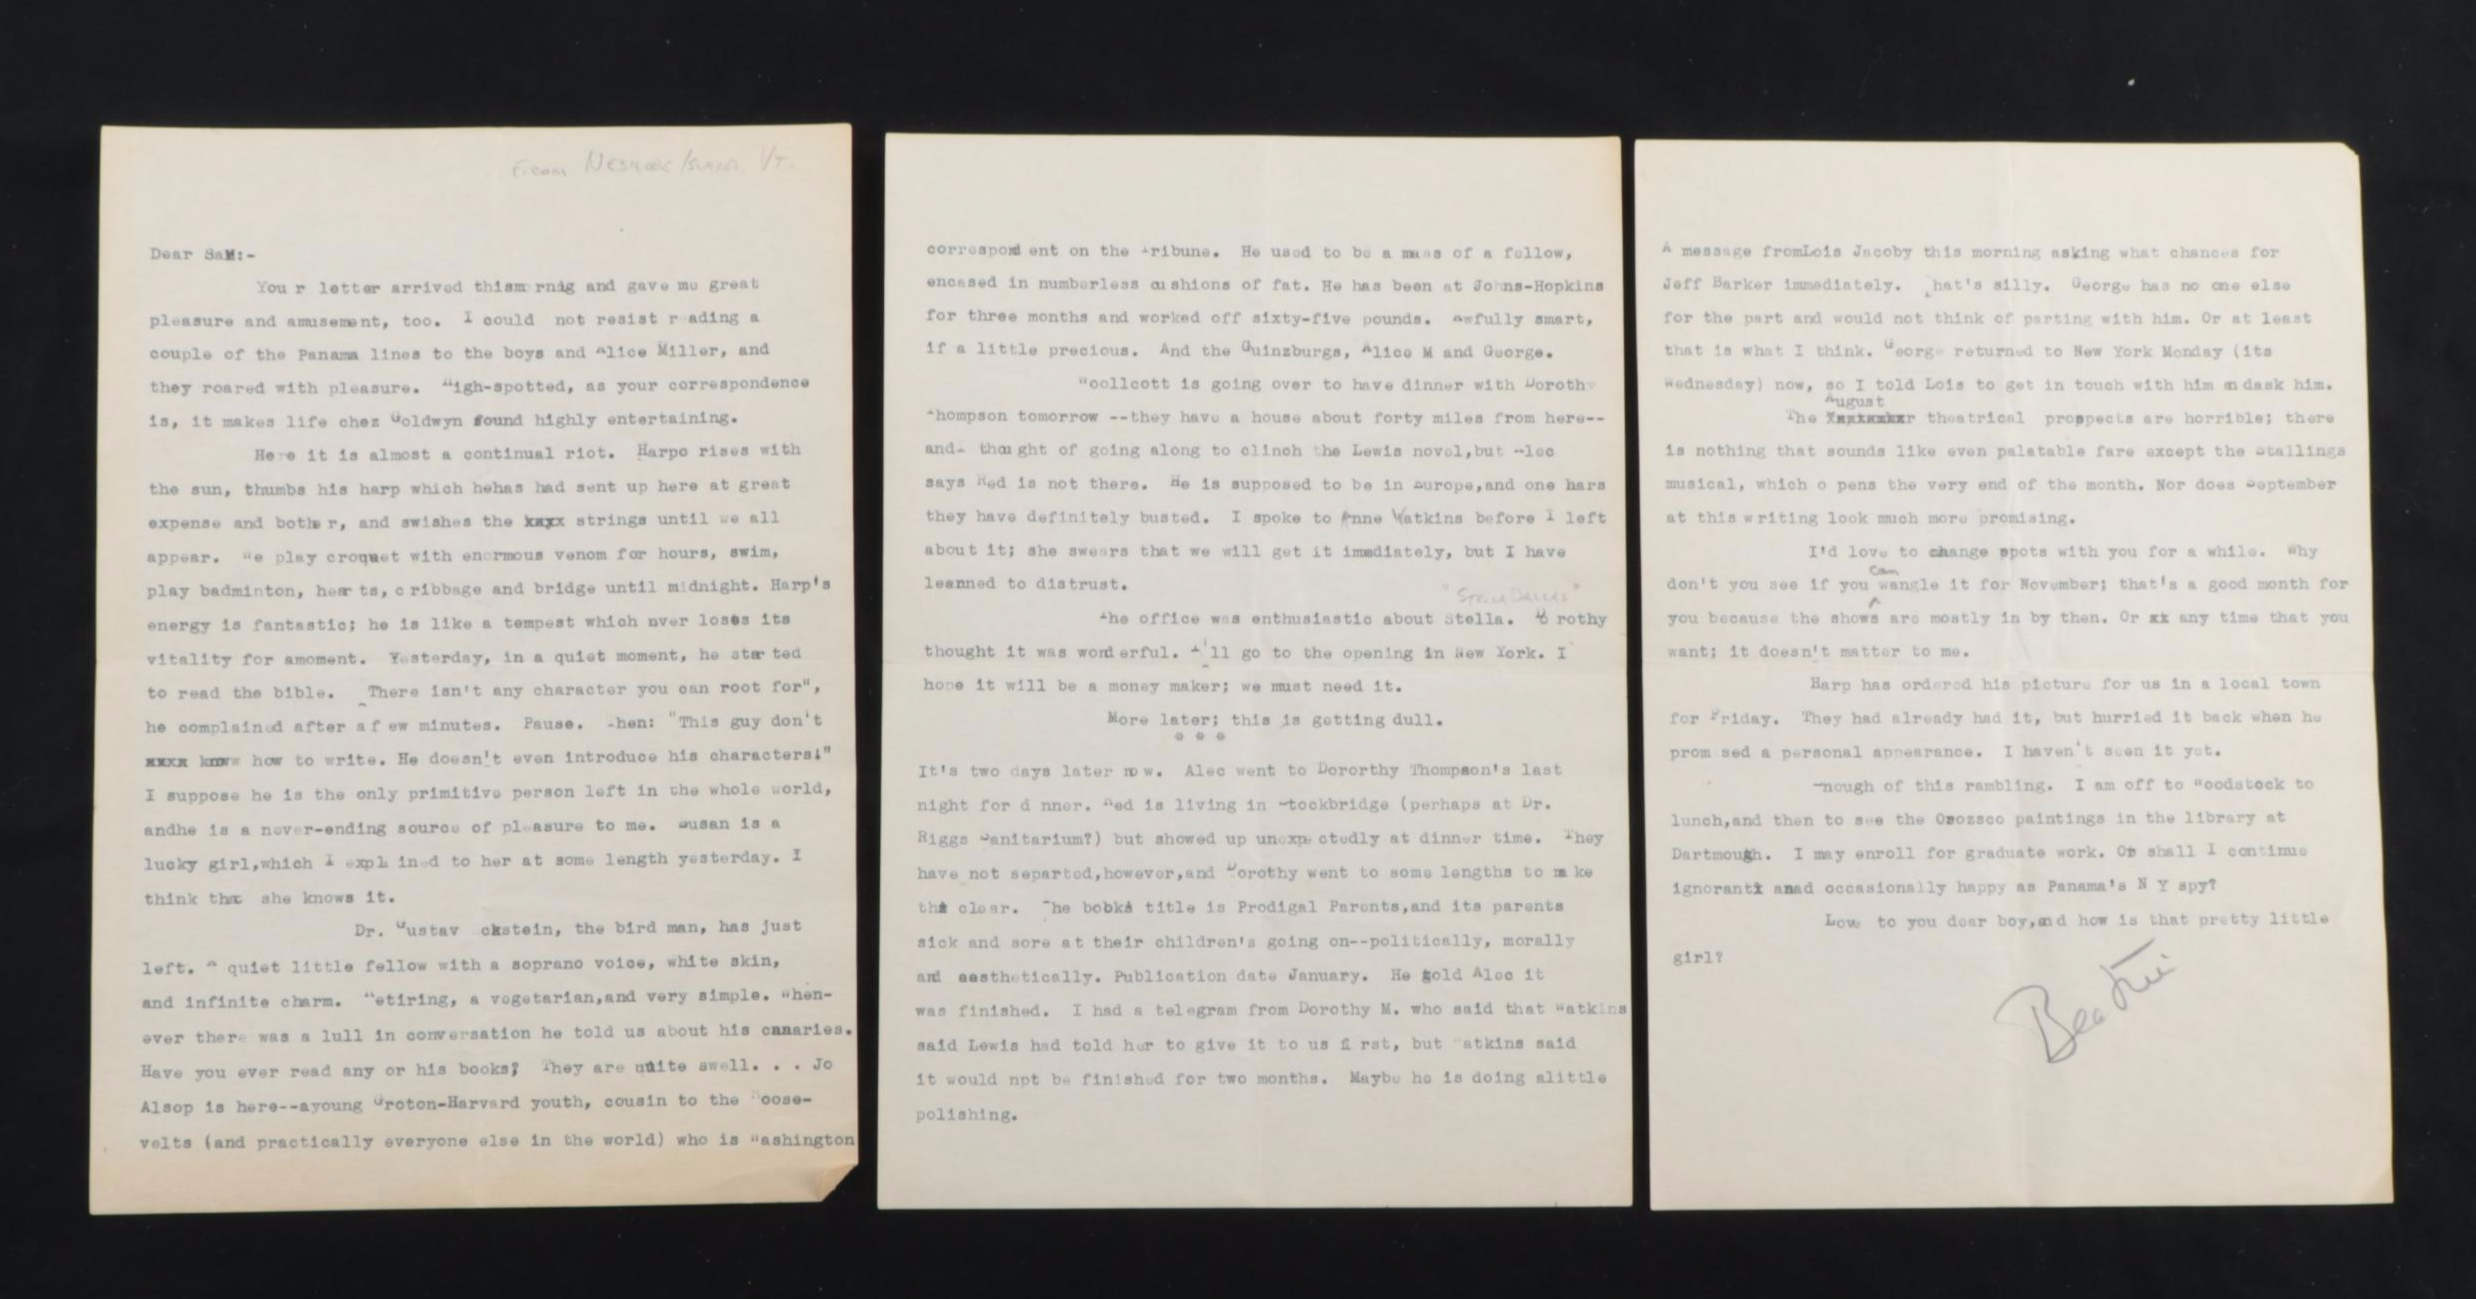 From Neshobe Island Vt.
Dear SaM:-
You r letter arrived thismornig and gave me great
pleasure and amusement, too. I could not resist r ading a
couple of the Panama lines to the boys and Alice Miller, and
they roared with pleasure. High-spotted, as your correspondence
is, it makes life chez Goldwyn sound highly entertaining.
Here it is almost a continual riot. Harpo rises with
the sun, thumbs his harp which hehas had sent up here at great
expense and bothe r, and swishes the xxxx strings until we all
appear. We play croquet with enormous venom for hours, swim,
play badminton, hear ts, c ribbage and bridge until midnight. Harp's
energy is fantastic; he is like a tempest which nver loses its
vitality for amoment. Yesterday, in a quiet moment, he star ted
to read the bible. "There isn't any character you can root for",
he complained after af ew minutes. Pause. Then: "This guy don't
xxxx know how to write. He doesn't even introduce his characters!"
I suppose he is the only primitive person left in the whole world,
andhe is a never-ending source of pleasure to me. Susan is a
lucky girl,which I expla ined to her at some length yesterday. I
think that she knows it.
Dr. Gustav ckstein, the bird man, has just
left. A quiet little fellow with a soprano voice, white skin,
and infinite charm. Retiring, a vegetarian,and very simple. When-
ever there was a lull in conversation he told us about his canaries.
Have you ever read any or his books? They are quite swell. . . Jo
Alsop is here--ayoung Groton-Harvard youth, cousin to the Roose-
velts (and practically everyone else in the world) who is Washington
correspond ent on the Tribune. He used to be a mass of a fellow,
encased in numberless cu shions of fat. He has been at Johns-Hopkins
for three months and worked off sixty-five pounds. Awfully smart,
if a little precious. And the Guinzburgs, Alice M and George.
Woollcott is going over to have dinner with Dorothy
Thompson tomorrow --they have a house about forty miles from here--
andI thou ght of going along to clinch the Lewis novel,but Alec
says Red is not there. He is supposed to be in Europe,and one hars
they have definitely busted. I spoke to Anne Watkins before I left
about it; she swears that we will get it immediately, but I have
leanned to distrust.
"Stella Dallas"
The office was enthusiastic about Stella. Do rothy
thought it was wond erful. I'll go to the opening in New York. I
hope it will be a money maker; we must need it.
More later; this is getting dull.
* * *
It's two days later no w. Alec went to Dororthy Thompson's last
night for d nner. Red is living in Stockbridge (perhaps at Dr.
Riggs Sanitarium?) but showed up unexpe ctedly at dinner time. They
have not separted,however,and Dorothy went to some lengths to ma ke
that clear. The books title is Prodigal Parents,and its parents
sick and sore at their children's going on--politically, morally
and aesthetically. Publication date January. He told Alec it
was finished. I had a telegram from Dorothy M. who said that Watkins
said Lewis had told her to give it to us fi rst, but Watkins said
it would npt be finished for two months. Maybe he is doing alittle
polishing.
A message fromLois Jacoby this morning asking what chances for
Jeff Barker immediately. That's silly. George has no one else
for the part and would not think of parting with him. Or at least
that is what I think. George returned to New York Monday (its
Wednesday) now, so I told Lois to get in touch with him an dask him.
August
The xxxxxxxxr theatrical prospects are horrible; there
is nothing that sounds like even palatable fare except the Stallings
musical, which o pens the very end of the month. Nor does September
at this writing look much more promising.
I'd love to change spots with you for a while. Why
can
don't you see if you wangle it for November; that's a good month for
you because the shows are mostly in by then. Or xx any time that you
want; it doesn't matter to me.
Harp has ordered his picture for us in a local town
for Friday. They had already had it, but hurried it back when he
prom sed a personal appearance. I haven't seen it yet.
Enough of this rambling. I am off to Woodstock to
lunch,and then to see the Orozsco paintings in the library at
Dartmough. I may enroll for graduate work. Or shall I continue
ignorant anad occasionally happy as Panama's N Y spy?
Love to you dear boy,and how is that pretty little
girl?
Beatrice